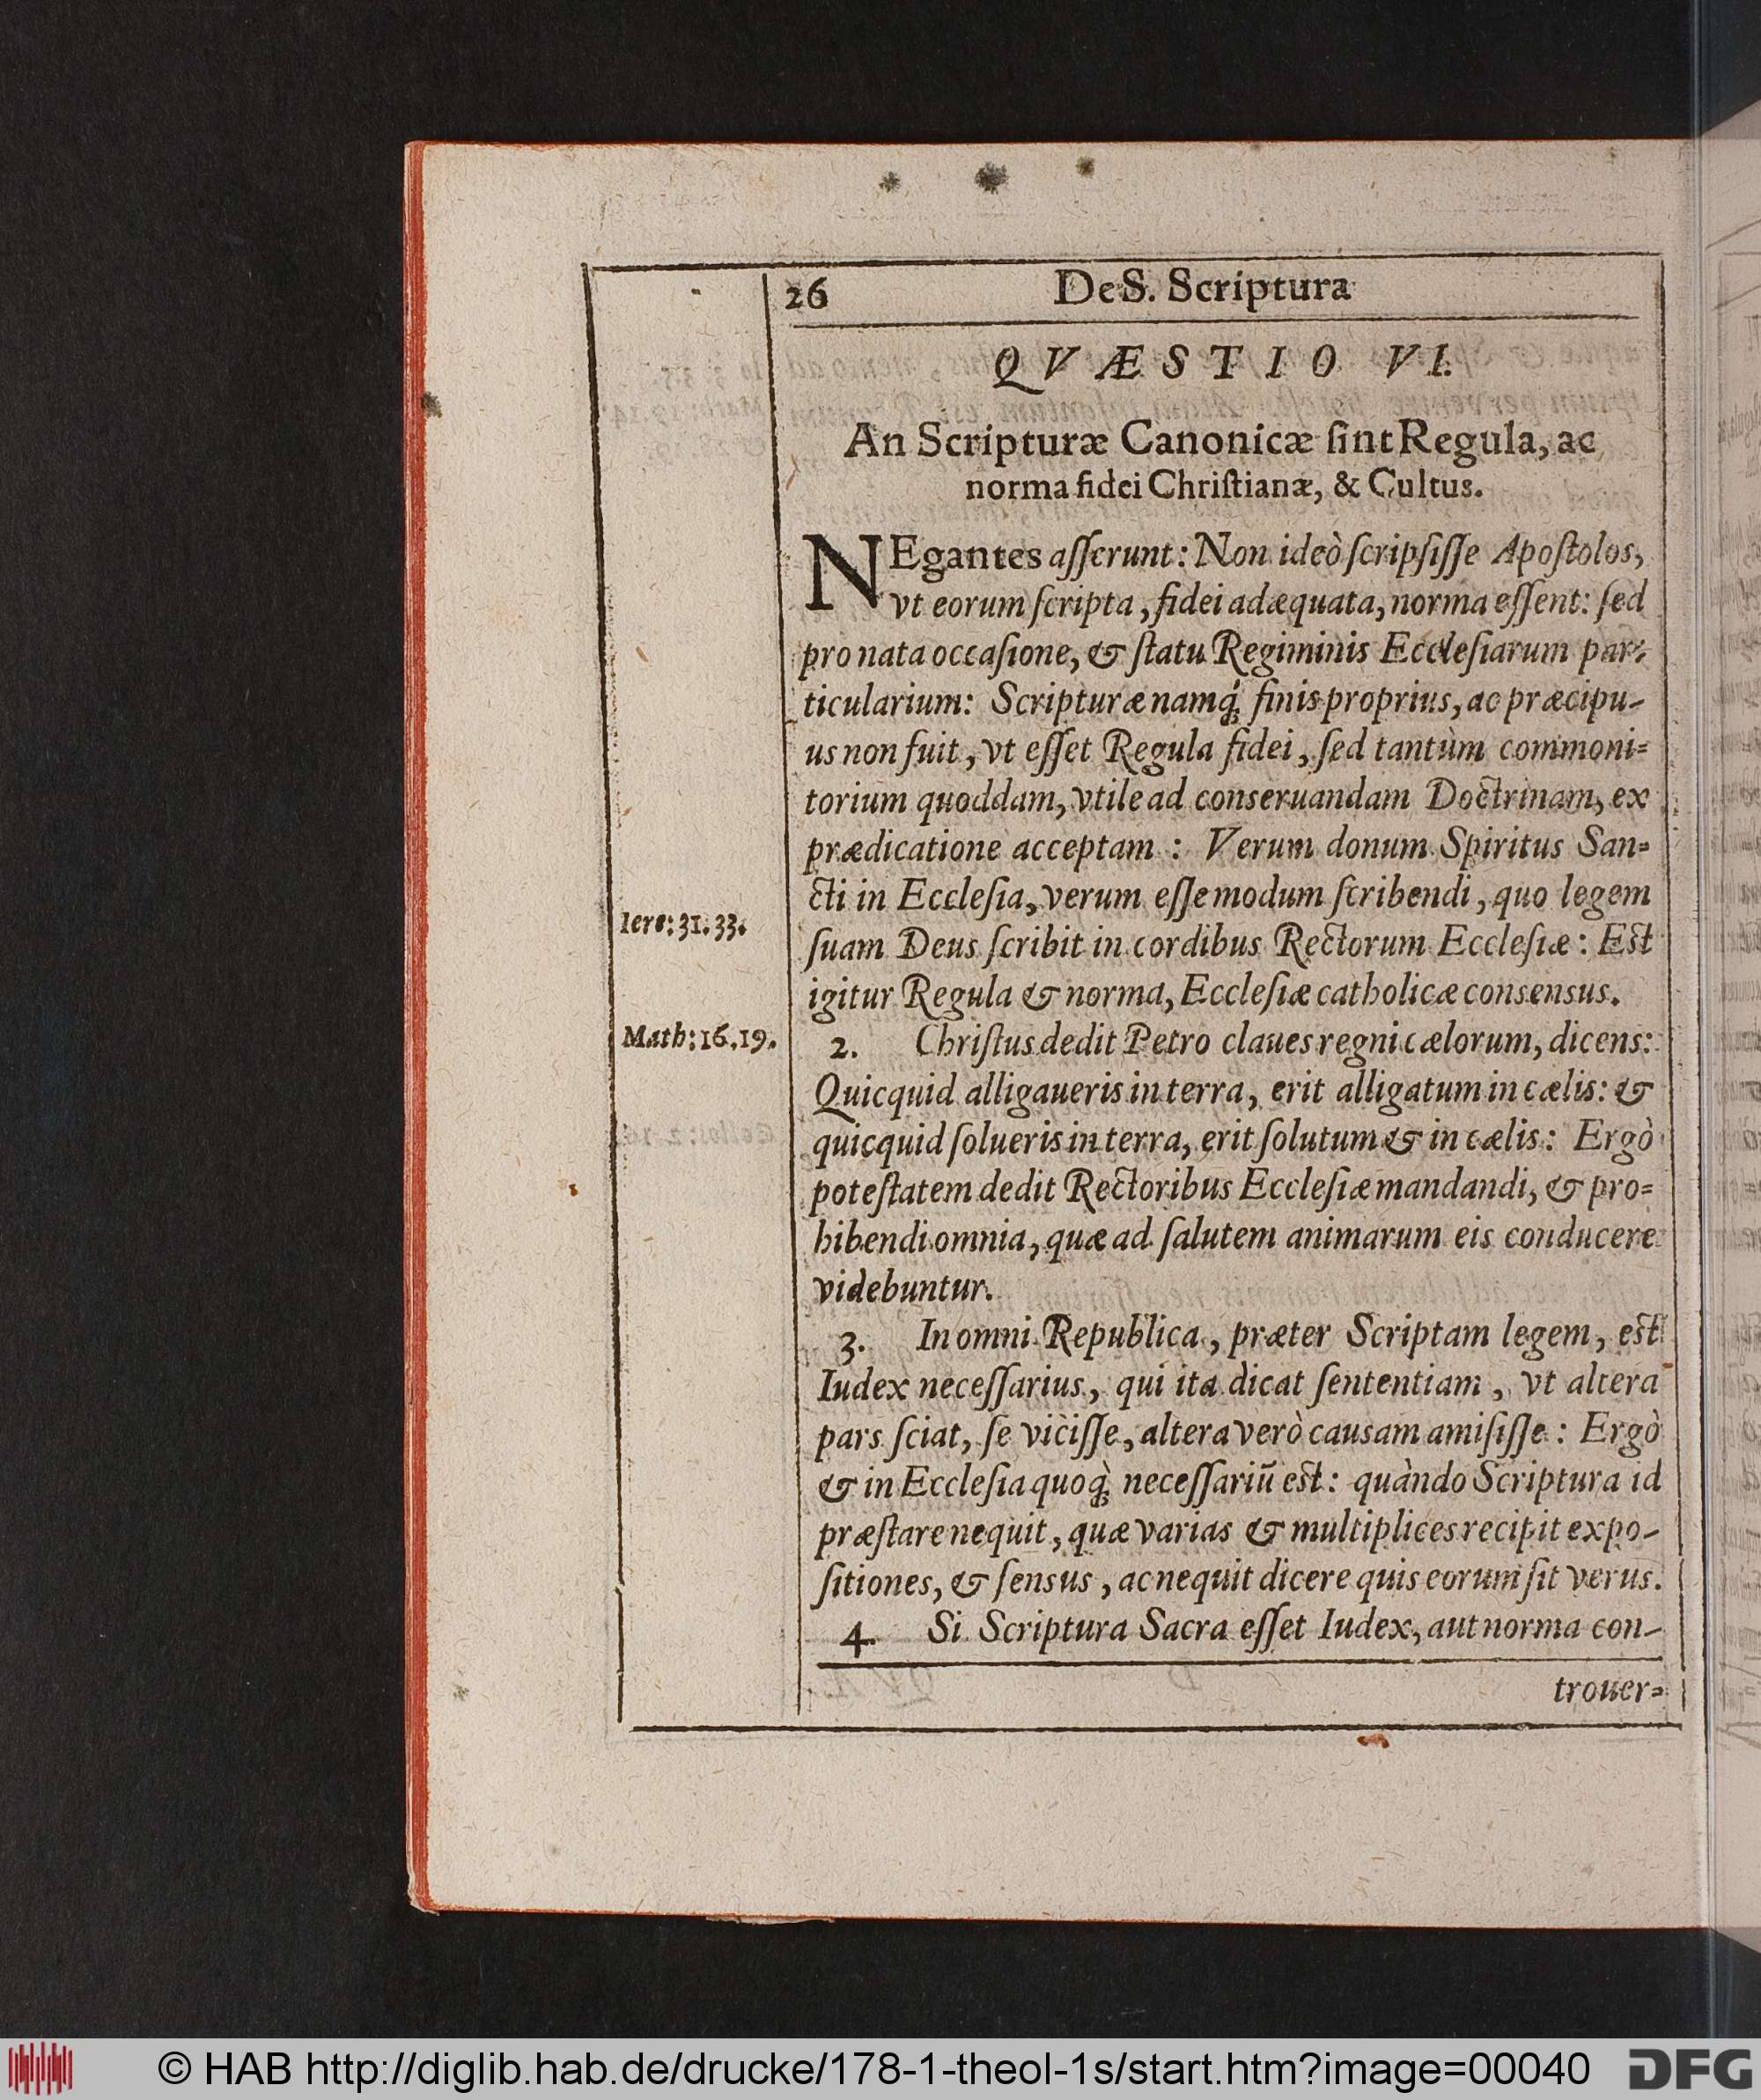 26 De S. Scriptura
QVÆSTIO VI.
An Scripturæ Canonicæ ſint Regula, ac
norma fidei Chriſtianæ, & Cultus.
NEgantes aſſerunt: Non ideò ſcripſiſſe Apoſtolos,
vt eorum ſcripta, fidei adæquata, norma eſſent: ſed
pro nata occaſione, & ſtatu Regiminis Eccleſiarum par-
ticularium: Scripturæ namq́; finis proprius, ac præcipu-
us non fuit, vt eſſet Regula fidei, ſed tantùm commoni-
torium quoddam, vtile ad conseruandam Doctrinam, ex
prædicatione acceptam: Verum donum Spiritus San-
cti in Eccleſia, verum eſſe modum ſcribendi, quo legem
Iere: 31. 33.
ſuam Deus ſcribit in cordibus Rectorum Eccleſiæ: Eſt
igitur Regula & norma, Eccleſiæ catholicæ consensus.
Math: 16. 19.
2. Chriſtus dedit Petro claues regni cælorum, dicens:
Quicquid alligaueris in terra, erit alligatum in cælis: &
quicquid ſolueris in terra, erit ſolutum & in cælis: Ergò
poteſtatem dedit Rectoribus Eccleſiæ mandandi, & pro-
hibendi omnia, quæ ad ſalutem animarum eis conducere
videbuntur.
3. In omni Republica, præter Scriptam legem, eſt
Iudex neceſſarius, qui ita dicat ſententiam, vt altera
pars ſciat, ſe viciſſe, altera verò causam amiſiſſe: Ergò
& in Eccleſia quoq̀; neceſſariũ eſt: quàndo Scriptura id
præſtare nequit, quæ varias & multiplices recipit expo-
ſitiones, & ſensus, ac nequit dicere quis eorum ſit verus.
4. Si Scriptura Sacra eſſet Iudex, aut norma con-
trouer-
© HAB http://diglib.hab.de/drucke/178-1-theol-1s/start.htm?image=00040 DFG